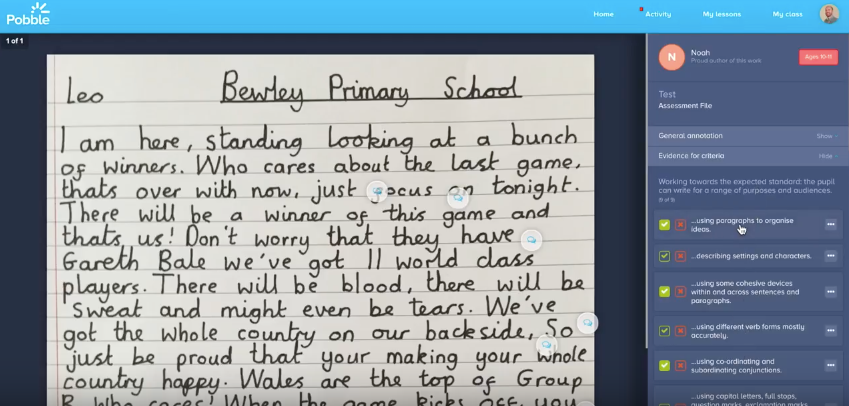 Pobble
Home
Activity
My lessons
My class
1 of 1
Leo Bewley Primary School
I am here, standing looking at a bunch
of winners. Who cares about the last game,
thats over with now, just focus on tonight.
There will be a winner of this game and
thats us! Don't worry that they have
Gareth Bale we've got 11 world class
players. There will be blood, there will be
sweat and might even be tears. We've
got the whole country on our backside. So
just be proud that your making your whole
country happy. Wales are the top of Group
B. Who cares! When the game kicks off, you
N
Noah
Proud author of this work
Ages 10-11
Test
Assessment File
General annotation
Show
Evidence for criteria
Hide
Working towards the expected standard: the pupil
can write for a range of purposes and audiences.
...using paragraphs to organise
ideas.
...describing settings and characters.
...using some cohesive devices
within and across sentences and
paragraphs.
...using different verb forms mostly
accurately.
...using co-ordinating and
subordinating conjunctions.
...using capital letters, full stops,
question marks, exclamation marks,